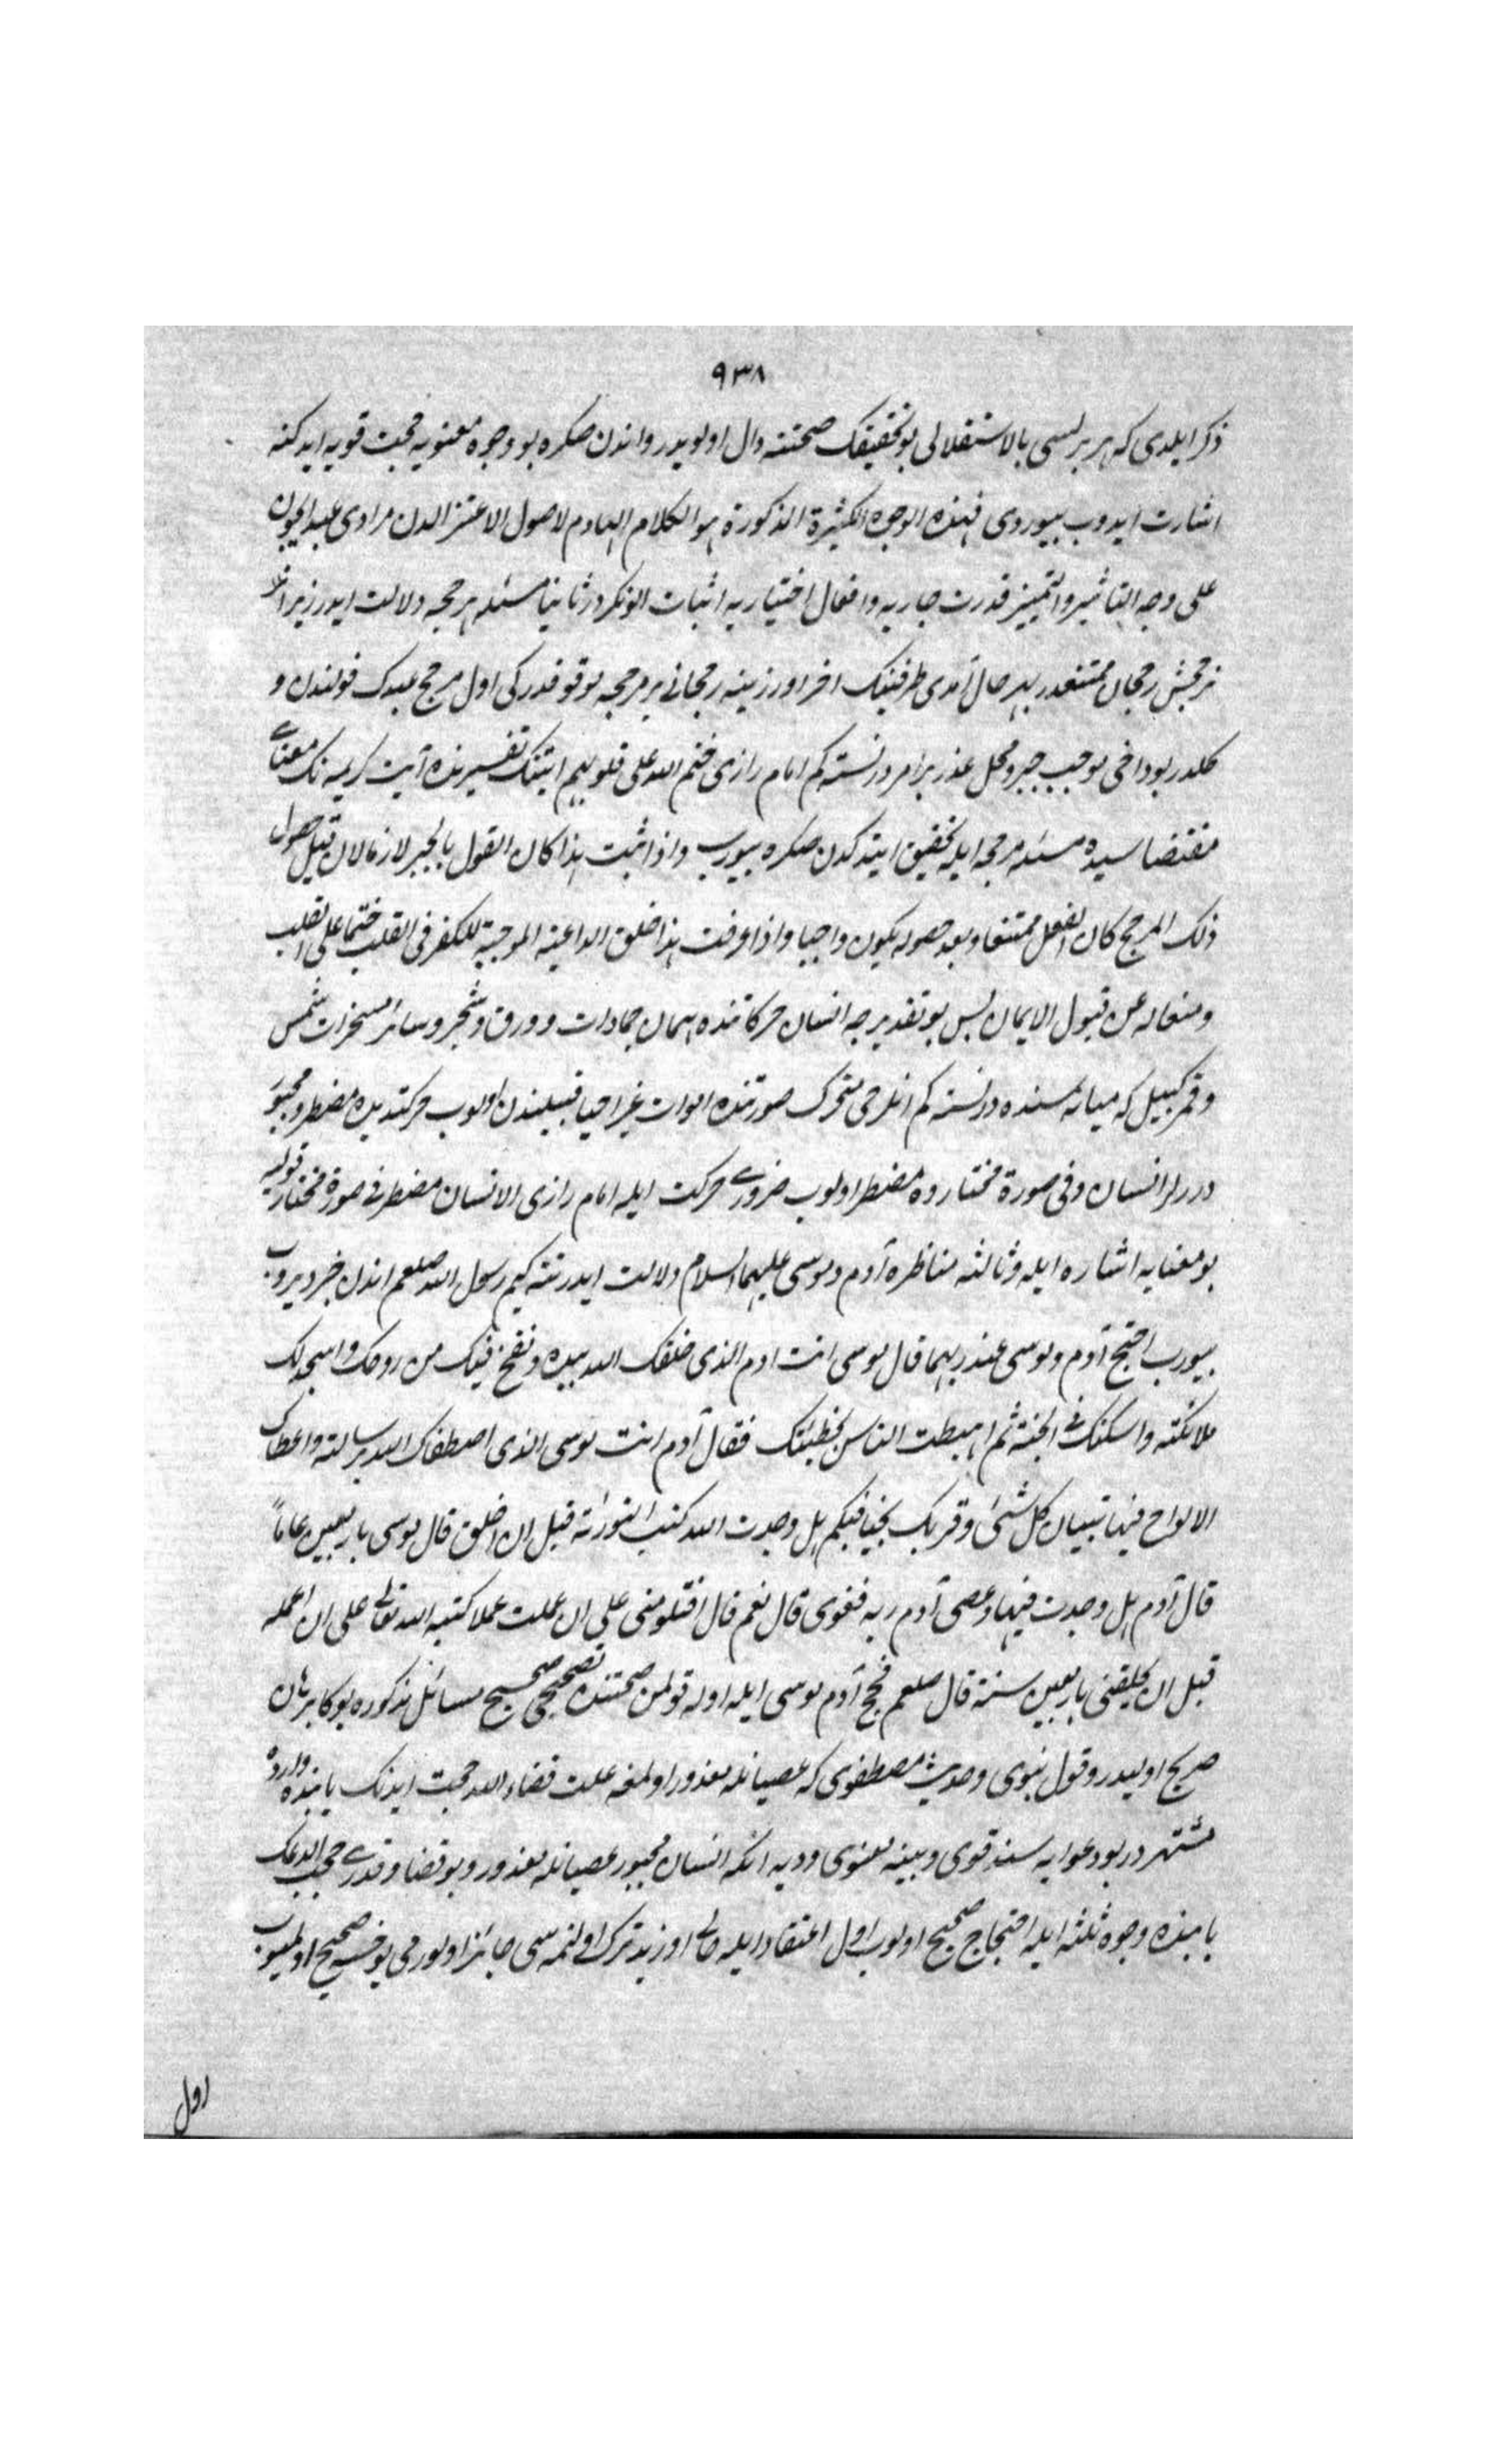 ٩٣٨
ذكر ايلدى كه هر برلسى بالاستقلالى بو تحقيقك صحتنه دال اولويدر واندن صكره بو وجوه معنويه حجت قويه ايدكنه
اشارت ايدوب بيوردى فهذه الوجوه الكثيرة المذكورة هو الكلام الهادم لاصول الاعتزال دن مرادى
على وجه التاثير والتمييز قدرت جاريه وافعال اختياريه اثبات الونكر در ثانيا مسئله مرجحه دلالت ايدر زيرا
ترجيحسز رجحان ممتنعدر بهر حال آمدى طرفينك اخر اوزرينه رجحانى بر مرجحه موقوفدر كى اول مرجح عبدك قولندن و
كلدر بو داخى موجب جبر ومحل عذر بر امر در نته كم امام رازى ختم الله على قلوبهم ايتنك تفسيرنده آيت كريمه نك معناى
مقتضاسيده مسئله مرجحه ايله تحقيق ايتدكدن صكره بيورب واذا ثبت هذا كان القول بالجبر لازما لان قبل حصول
ذلك المرجح كان الفعل ممتنعا وبعد حصوله يكون واجبا واذا عرفت هذا خلق الداعية الموجبة للكفر فى القلب ختما على القلب
ومنعا له عن قبول الايمان پس بو تقديرجه انسان حركاتنده همان جمادات وورق وشجر وسائر مسخرات شمس
وقمر كبيل كه ميانه سنده در نته كم انلر حى متحرك صورتنده اموات غير احيا قبيلندن اولوب حركتديده مضطر ومجبور
درر انسان وفى صورة مختار وه مضطر اولوب ضرورى حركت ايله امام رازى الانسان مضطر فى صورة مختار قوليه
بو معنايه اشاره ايله وثالثه مناظره آدم وموسى عليهما السلام دلالت ايدر نته كيم رسول الله صلعم اندن خبر ويروب
بيورب احتج آدم وموسى عند ربهما قال موسى انت ادم الذى خلقك الله بيده ونفخ فيك من روحك واسجد لك
ملائكته واسكنك فى الجنة ثم اهبطت الناس بخطيئتك فقال آدم انت موسى الذى اصطفاك الله برسالته واعطاك
الالواح فيها تبيان كل شئ وقربك نجيا فبكم بل وجدت الله كتب التورية قبل ان اخلق قال موسى باربعين عاماً
قال آدم بل وجدت فيها وعصى آدم ربه فغوى قال نعم قال افتلومنى على ان عملت عملا كتبه الله تعالى على ان اعمله
قبل ان يخلقنى باربعين سنة قال صلعم فحج آدم موسى ايله اوله قولمن صحتنده تصحيحى صحيح مسائل مذكوره يوكا برهان
صريح اوليدر وقول نبوى وحديث مصطفوى كه عصيانله معذور اولمغه علت قضاء الله حجت ايدنك يابنده وارده
مشتهر در بو دعوايه سند قوى وبينه معنوى وديه انكه انسان مجبور عصيانله معذور وبو قضا وقدرى حجب
يابنده وجوه ثلثه ايله احتجاج صحيح اولوب اول اعتقاد ايله حالى اوزيد ترك اولنمه سى جائز اولورمى يوخسه صحيح اولميوب
اول